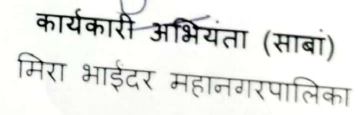 कार्यकारी अभियंता (साबां)
मिरा भाईंदर महानगरपालिका